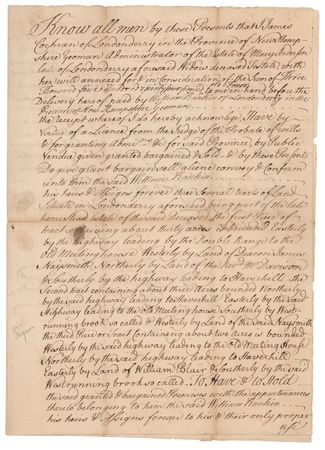 Know all men by these Presents that I James
Cochran of Londonderry in the Province of New Hamp-
shere yeoman Administrator of the Estate of Mary Anderson
late of Londonderry aforesaid Widow deceased Testate, with
her will annexed for & in Consideration of the Sum of Three
Thousand five Hundred
to me in hand before the
Delivery hereof paid by William Rankin of Londonderry in the
Province of New Hampshire yeoman
the receipt whereof I do hereby acknowledge Have by
Virtue of a Licence from the Judge of the Probate of wills
& for granting Admns &c for said Province, by Public
Vendue given granted bargained & Sold & by these Presents
Do give grant bargain sell aliene convey & Confirm
unto him the said William Rankin
his heirs & Assigns forever three Several tracts of Land
Situate in Londonderry aforesaid being part of the late
homestead estate of the said Deceased the first Piece of
tract containing about thirty acres is bounded Easterly
by the highway leading by the Double Range to the
Old Meetinghouse Westerly by Land of Deacon James
Naysmith Northerly by Land of the Revd Mr Davidson
& Southerly by the highway leading to Haverhill. the
Second tract containing about three Acres bounded Northerly
by the said highway leading to Haverhill Easterly by the said
highway leading to the Old Meeting house Southerly by West-
running brook so called & Westerly by Land of the said Naysmith
the third Piece or tract containing about two Acres is bounded
Westerly by the said highway leading to the Old Meeting House
Northerly by the said highway leading to Haverhill
Easterly by Land of William Blair & Southerly by the said
Westrunning brook so called. To Have & to Hold
the said granted & bargained Premises with the appurtenances
thereto belonging to him the said William Rankin
his heirs & Assigns forever to his & their only proper
use